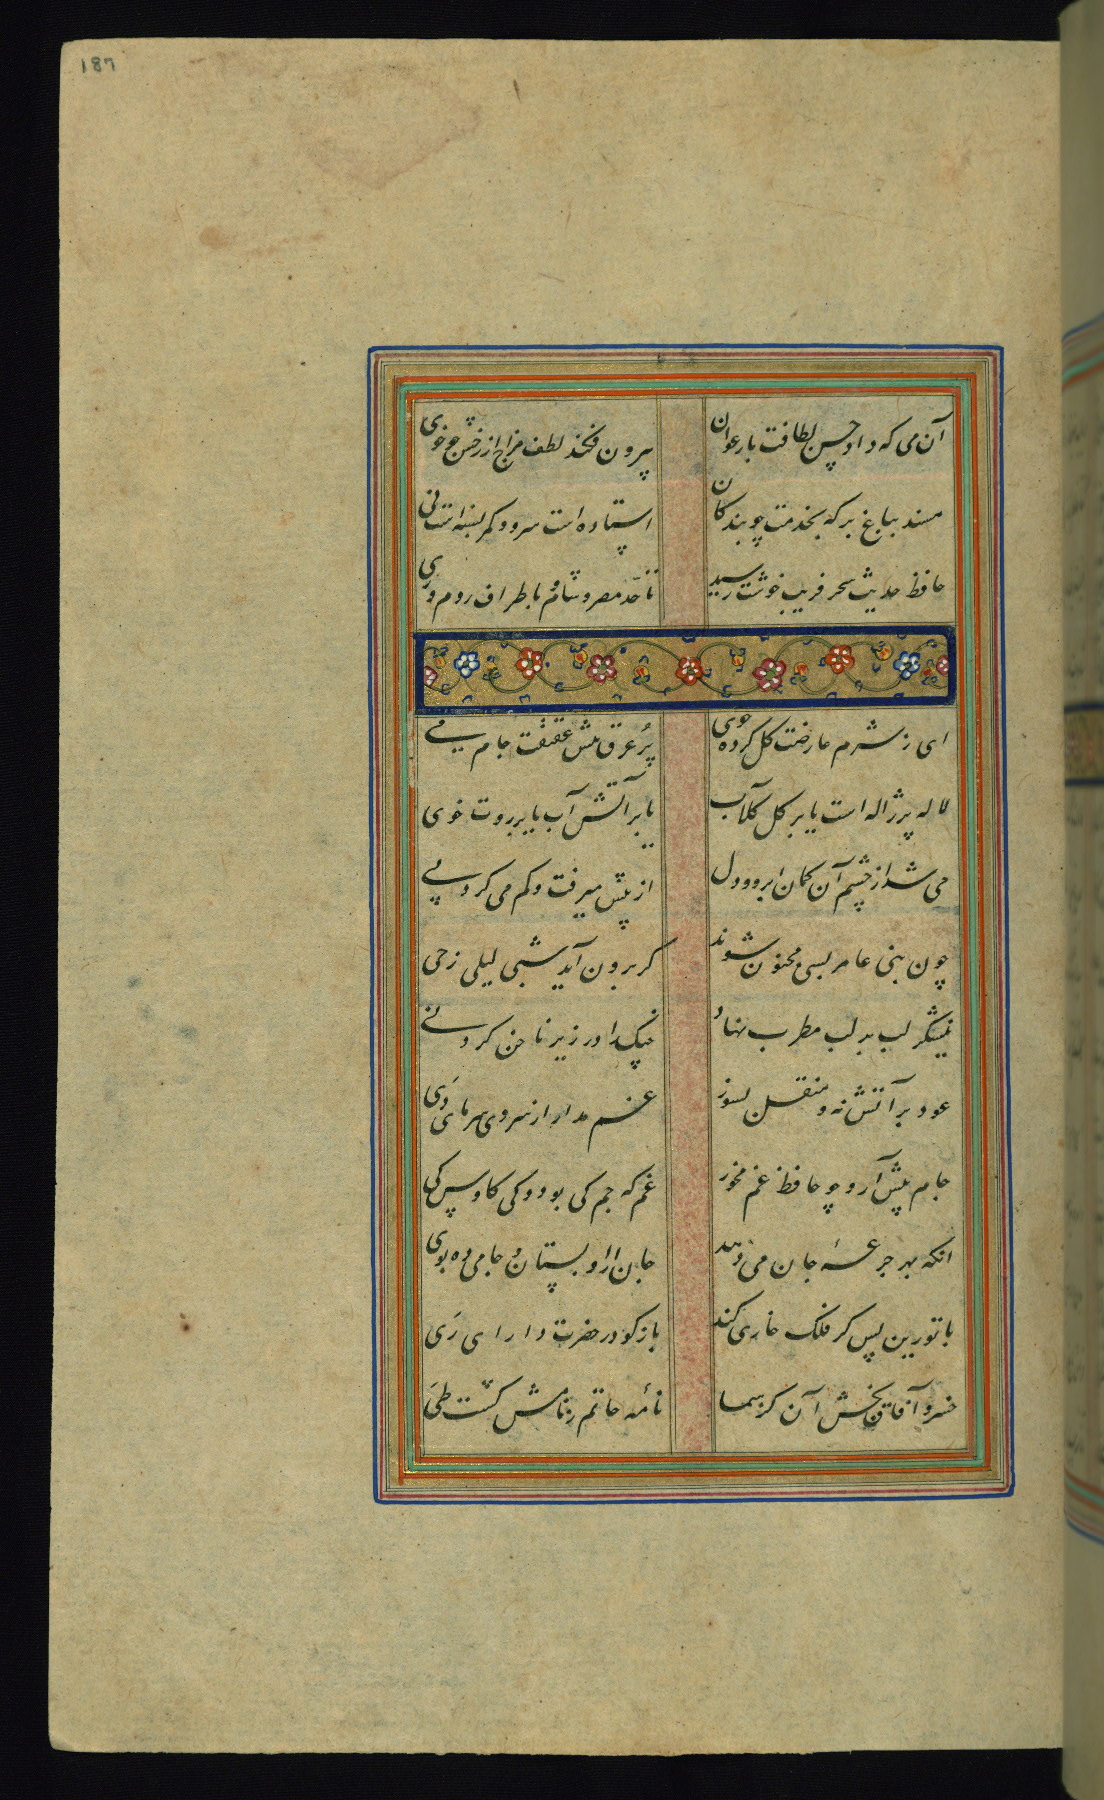 187
آن می که داد حسن لطافت بارغوان
بیرون فکند لطف مزاج از رخش بخوی
مسند بباغ بر که بخدمت چو بندکان
استاده است سرو و کمر بسته است نی
حافظ حدیث سحر فریب خوشت رسید
تا حد مصر و شام و باطراف روم و ری
ای ز شرم عارضت کل کرده خوی
پر عرق پیش عقیقت جام می
لاله پر ژاله است یا بر کل کلاب
یا بر آتش آب یا بر روت خوی
می شد از چشم آن کمان ابرو و دل
از پیش میرفت و کم می کرد پی
چون بنی عامر بسی مجنون شوند
کر برون آید شبی لیلی ز حی
نیشکر لب بر لب مطرب نهاد
چنک را در زیر ناخن کرد نی
عود بر آتش نه و منقل بسوز
غم مدار از سردی سرمای دی
جام پیش آر و چو حافظ غم مخور
غم که جم کی بود و کی کاوس کی
انکه بهر جرعه جان می دهد
جان ازو بستان و جامی ده بوی
با تو زین پس کر فلک خاری کند
باز کو در حضرت دارای ری
خسرو آفاق بخش آن کز سما
نامه حاتم ز نامش کشت طی